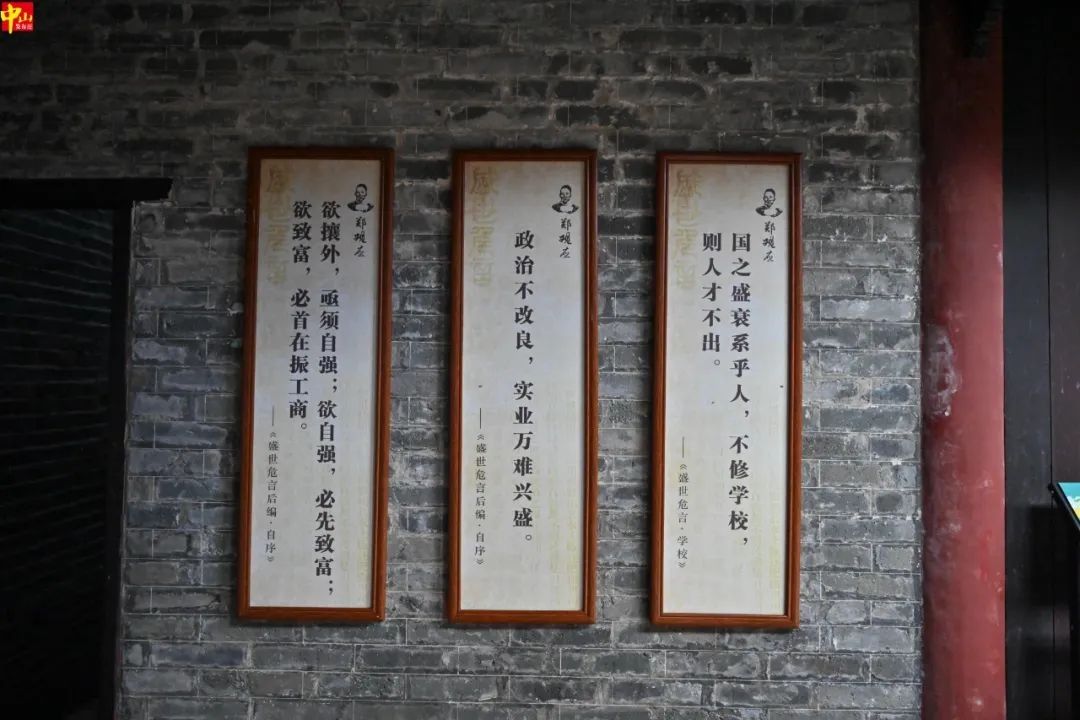 中山
发布厅
郑观应
国之盛衰系乎人，不修学校，
则人才不出。
——《盛世危言·学校》
郑观应
政治不改良，实业万难兴盛。
——《盛世危言后编·自序》
郑观应
欲攘外，亟须自强；欲自强，必先致富；
欲致富，必首在振工商。
——《盛世危言后编·自序》
盛世危言
盛世危言
盛世危言